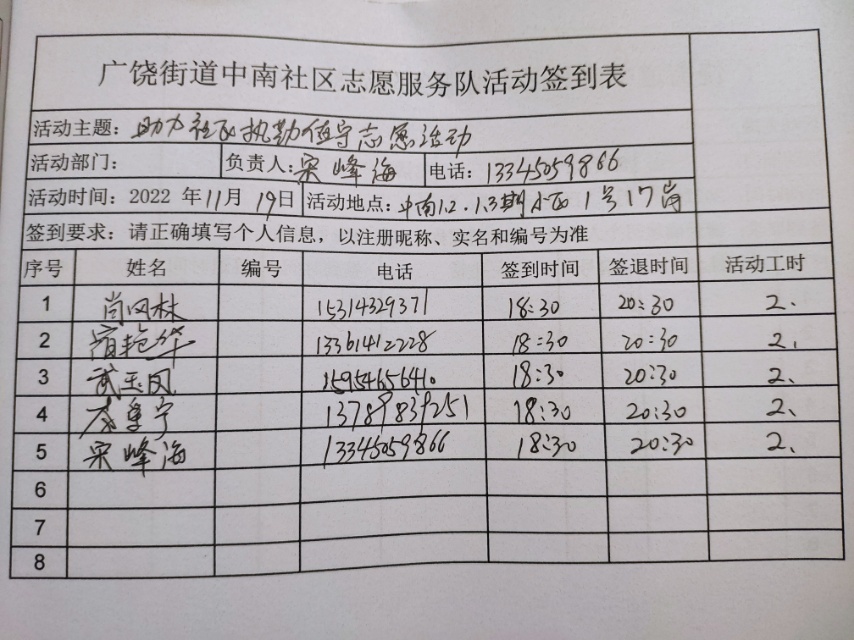 广饶街道中南社区志愿服务队活动签到表
活动主题：助力社区执勤值守志愿活动
活动部门： 负责人：宋峰海 电话：13345059866
活动时间：2022 年11月19日 活动地点：中南1.2.1.3期小区1号17岗
签到要求：请正确填写个人信息，以注册昵称、实名和编号为准
序号 姓名 编号 电话 签到时间 签退时间 活动工时
1 尚风林 15314329371 18:30 20:30 2、
2 艳华 13361412228 18:30 20:30 2、
3 武玉凤 15954656410 18:30 20:30 2、
4 13789839251 18:30 20:30 2、
5 宋峰海 13345059866 18:30 20:30 2、
6
7
8